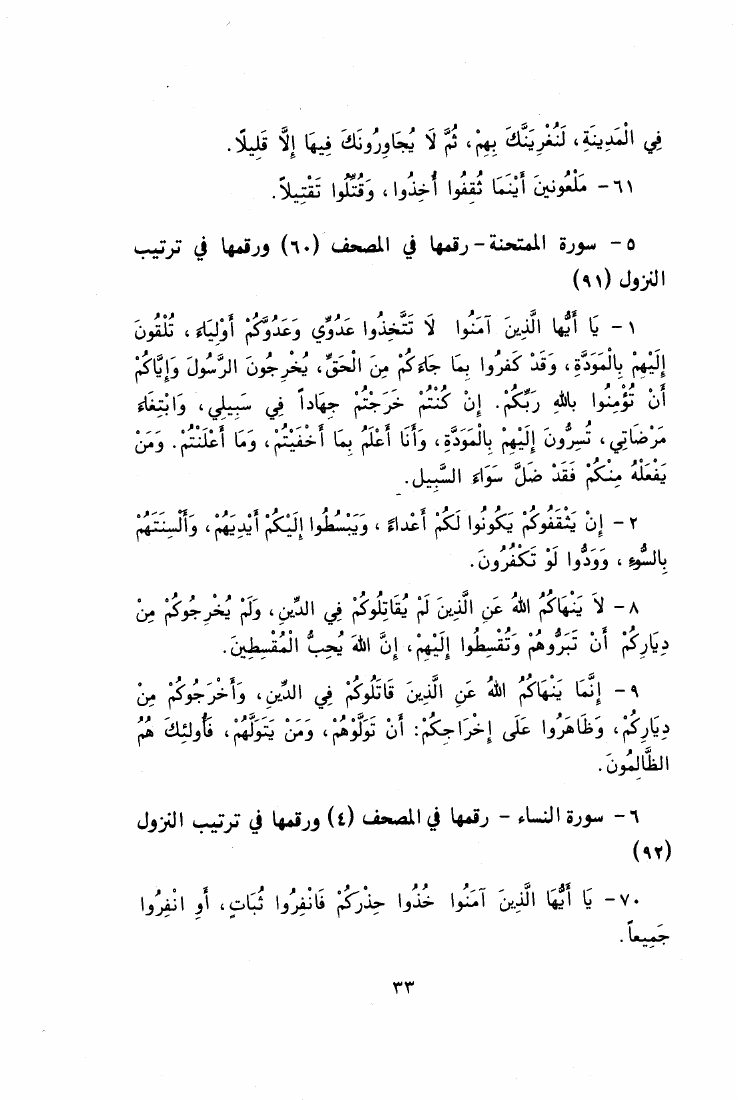 فِي الْمَدِينَةِ، لَنُغْرِيَنَّكَ بِهِمْ، ثُمَّ لَا يُجَاوِرُونَكَ فِيهَا إِلَّا قَلِيلًا.
٦١ - مَلْعُونينَ أَيْنَمَا ثُقِفُوا أُخِذُوا، وَقُتِّلُوا تَقْتِيلاً.
٥ - سورة الممتحنة - رقمها في المصحف (٦٠) ورقمها في ترتيب
النزول (٩١)
١ - يَا أَيُّها الَّذِينَ آمَنُوا لَا تَتَّخِذُوا عَدُوِّي وَعَدُوَّكُمْ أَوْلِيَاءَ، تُلْقُونَ
إِلَيْهِمْ بِالْمَوَدَّةِ، وَقَدْ كَفَرُوا بِمَا جَاءَكُمْ مِنَ الْحَقِّ، يُخْرِجُونَ الرَّسُولَ وَإِيَّاكُمْ
أَنْ تُؤْمِنُوا بِاللهِ رَبِّكُمْ. إِنْ كُنْتُمْ خَرَجْتُمْ جِهَاداً فِي سَبِيلِي، وَابْتِغَاءَ
مَرْضَاتِي، تُسِرُّونَ إِلَيْهِمْ بِالْمَوَدَّةِ، وَأَنَا أَعْلَمُ بِمَا أَخْفَيْتُمْ، وَمَا أَعْلَنْتُمْ. وَمَنْ
يَفْعَلْهُ مِنْكُمْ فَقَدْ ضَلَّ سَوَاءَ السَّبِيلِ.
٢ - إِنْ يَثْقَفُوكُمْ يَكُونُوا لَكُمْ أَعْداءً، وَيَبْسُطُوا إِلَيْكُمْ أَيْدِيَهُمْ، وَأَلْسِنَتَهُمْ
بِالسُّوءِ، وَوَدُّوا لَوْ تَكْفُرُونَ.
٨ - لاَ يَنْهَاكُمُ اللهُ عَنِ الَّذِينَ لَمْ يُقَاتِلُوكُمْ فِي الدِّينِ، وَلَمْ يُخْرِجُوكُمْ مِنْ
دِيَارِكُمْ أَنْ تَبَرُّوهُمْ وَتُقْسِطُوا إِلَيْهِمْ، إِنَّ اللهَ يُحِبُّ الْمُقْسِطِينَ.
٩ - إِنَّمَا يَنْهَاكُمُ اللهُ عَنِ الَّذِينَ قَاتَلُوكُمْ فِي الدِّينِ، وَأَخْرَجُوكُمْ مِنْ
دِيَارِكُمْ، وَظَاهَرُوا عَلَى إِخْرَاجِكُمْ: أَنْ تَوَلَّوْهُمْ، وَمَنْ يَتَوَلَّهُمْ، فَأُولئِكَ هُمُ
الظَّالِمُونَ.
٦ - سورة النساء - رقمها في المصحف (٤) ورقمها في ترتيب النزول
(٩٢)
٧٠ - يَا أَيُّهَا الَّذِينَ آمَنُوا خُذُوا حِذْرَكُمْ فَانْفِرُوا ثُبَاتٍ، أَوِ انْفِرُوا
جَمِيعاً.
٣٣